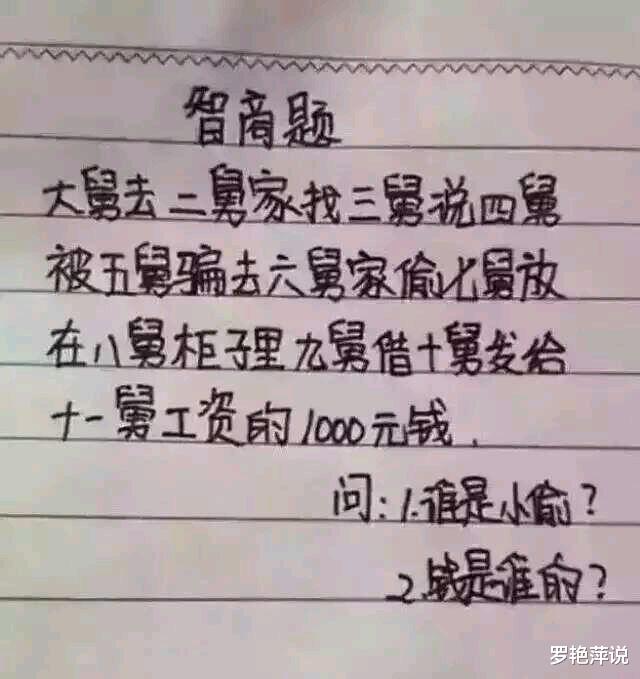 智商题
大舅去二舅家找三舅说四舅
被五舅骗去六舅家偷七舅放
在八舅柜子里九舅借十舅发给
十一舅工资的1000元钱.
问:1.谁是小偷?
2.钱是谁的?
罗艳萍说